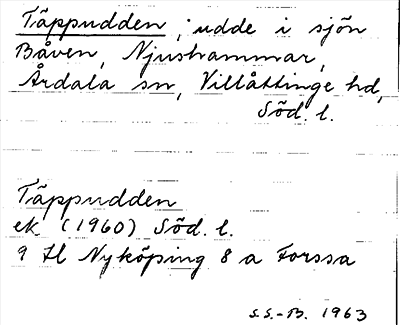 Täppudden ; udde i sjön
Båven, Njushammar,
Årdala sn, Villåttinge hd,
Söd. l.
Täppudden
ek. (1960) Söd. l.
9 Hl Nyköping 8 a Forssa
S.S.-B. 1963